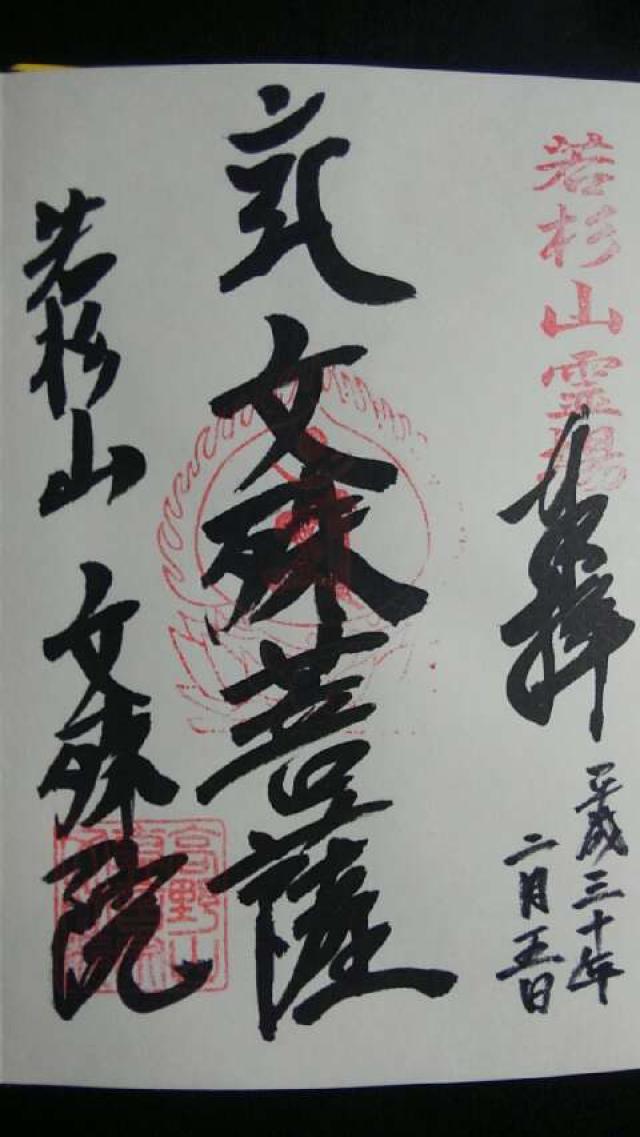 若杉山霊場
奉拝
平成三十年
二月五日
文殊菩薩
若杉山 文殊院
高野山